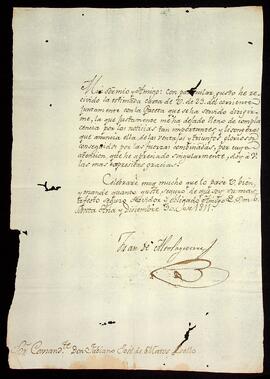 Mui señor mio y Amigo: con particular gusto he re-
civido la estimada carta de V. de 23. del corriente
juntamente con la Gazeta que se ha servido dirigir-
me, la que justamente me ha dejado lleno de compla-
cencia por las noticias tan importantes y lisongeras
que anuncia ella de las ventajas y triunfos gloriosos
conseguidos por las fuerzas combinadas, por cuya
atencion, que he apreciado singularmente, doy á V.
las mas expresivas gracias.
Celebraré muy mucho que lo pase V. bien,
y mande quanto guste seguro de que soy su
afecto seguro servidor y obligado Amigo Q. S. M. B.
Santa Fee y Diciembre 30 de 1811
Fran.co
Sor. Comand.te Don Fabiano José de